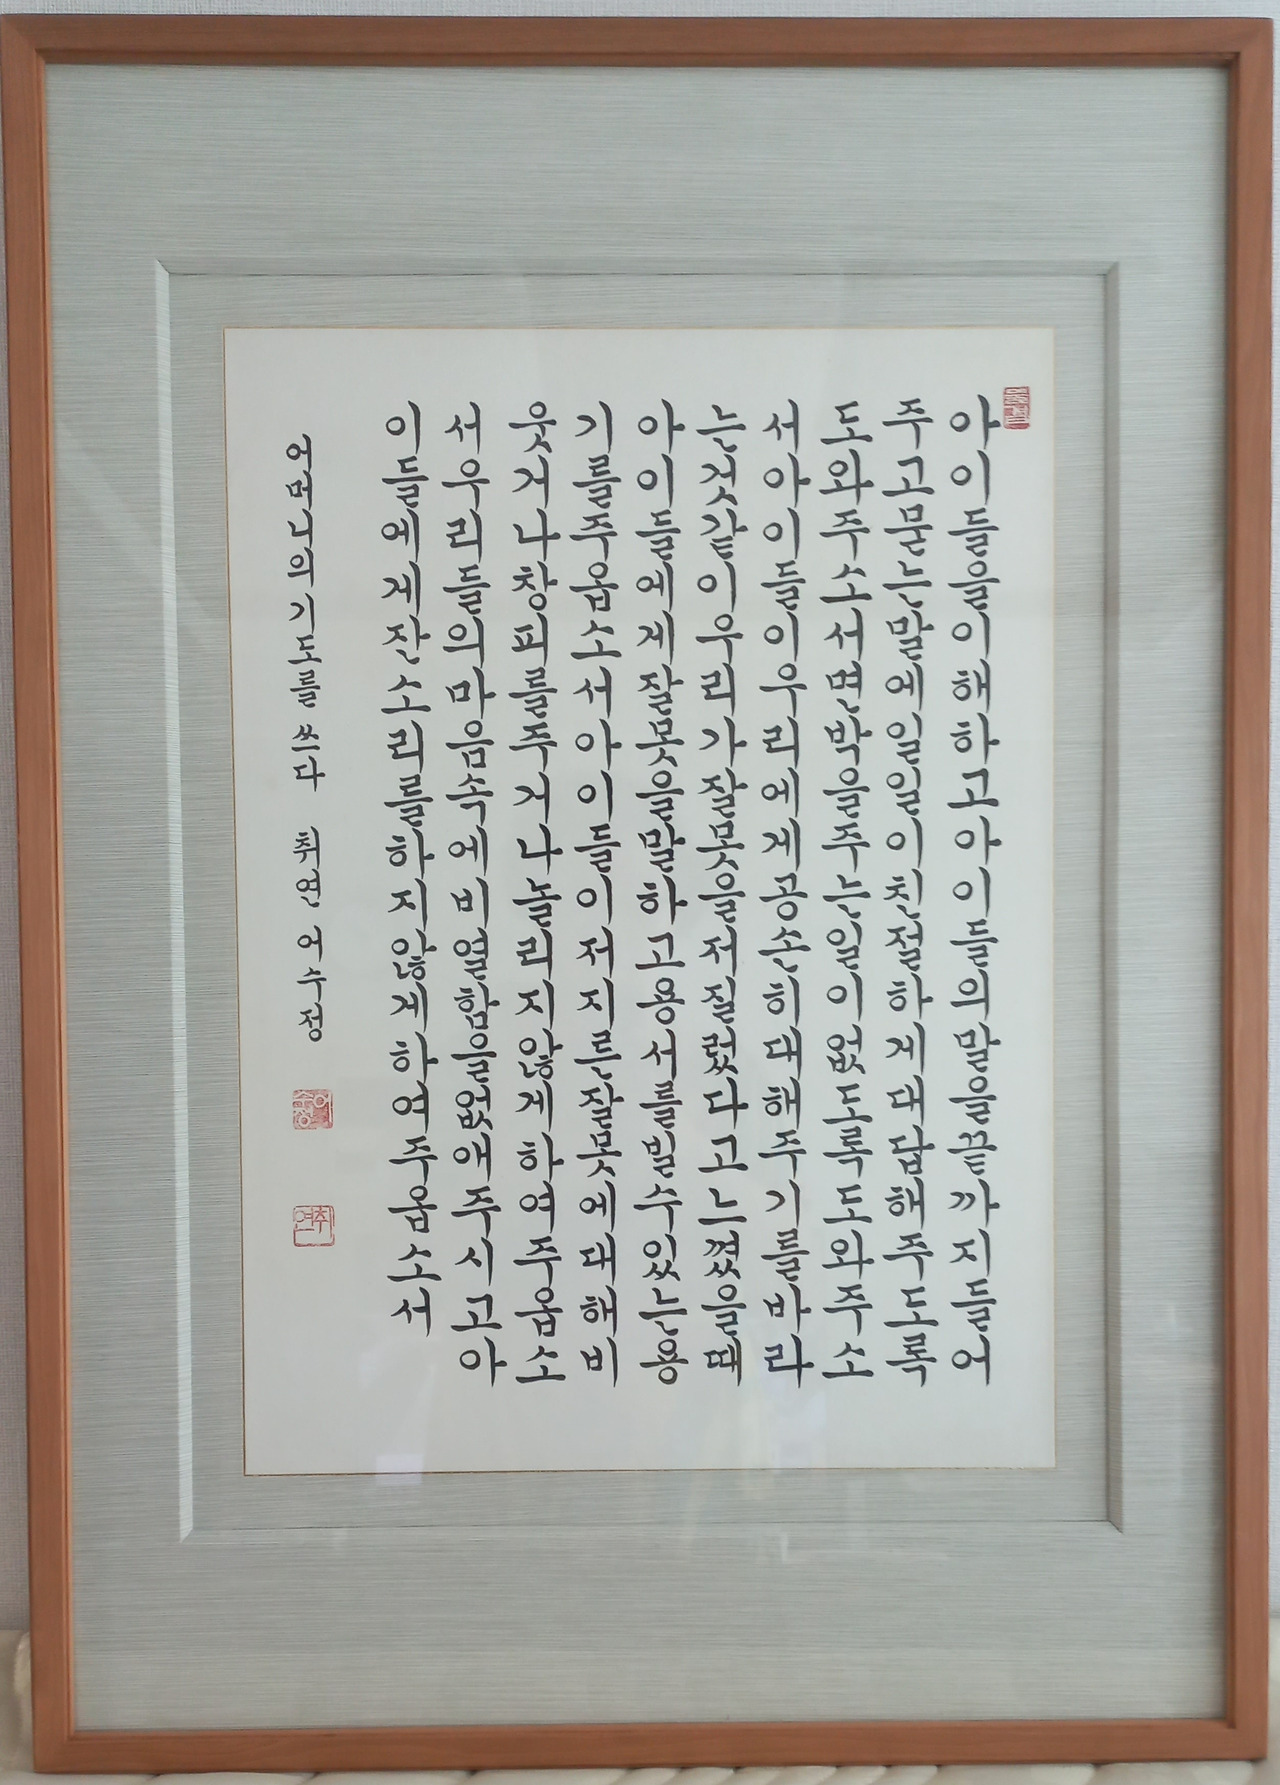 아이들을이해하고아이들의말을끝까지들어
주고묻는말에일일이친절하게대답해주도록
도와주소서면박을주는일이없도록도와주소
서아이들이우리에게공손히대해주기를바라
는것같이우리가잘못을저질렀다고느꼈을때
아이들에게잘못을말하고용서를빌수있는용
기를주옵소서아이들이저지른잘못에대해비
웃거나창피를주거나놀리지않게하여주옵소
서우리들의마음속에비열함을없애주시고아
이들에게잔소리를하지않게하여주옵소서
어머니의기도를 쓰다 취연 어수정
어수정
취연